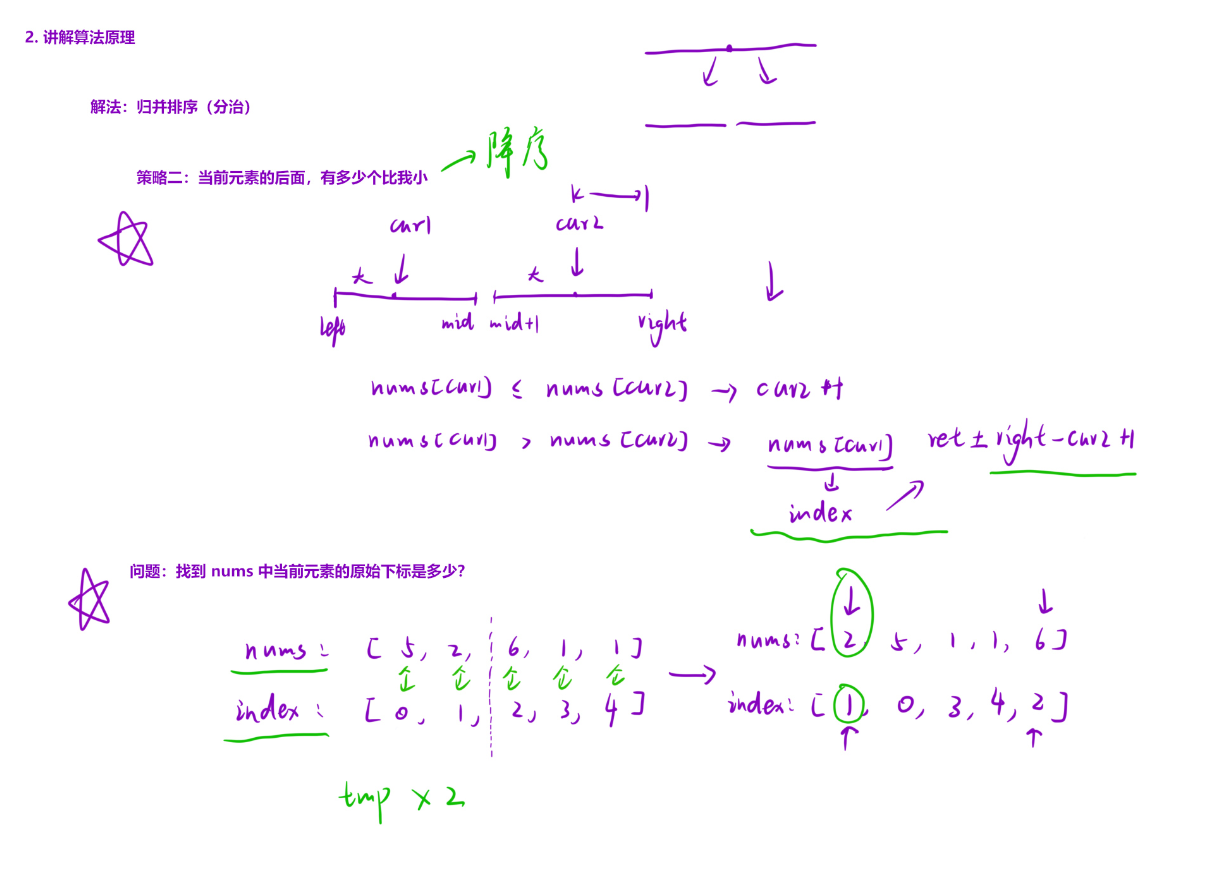 2. 讲解算法原理
解法：归并排序（分治）
策略二：当前元素的后面，有多少个比我小 → 降序
k
cur1 cur2
大 大
left mid mid+1 right
nums[cur1] ≤ nums[cur2] → cur2++
nums[cur1] > nums[cur2] → nums[cur1] ret += right-cur2+1
index
问题：找到 nums 中当前元素的原始下标是多少？
nums: [5, 2, 6, 1, 1] → nums: [2, 5, 1, 1, 6]
index: [0, 1, 2, 3, 4] index: [1, 0, 3, 4, 2]
tmp × 2